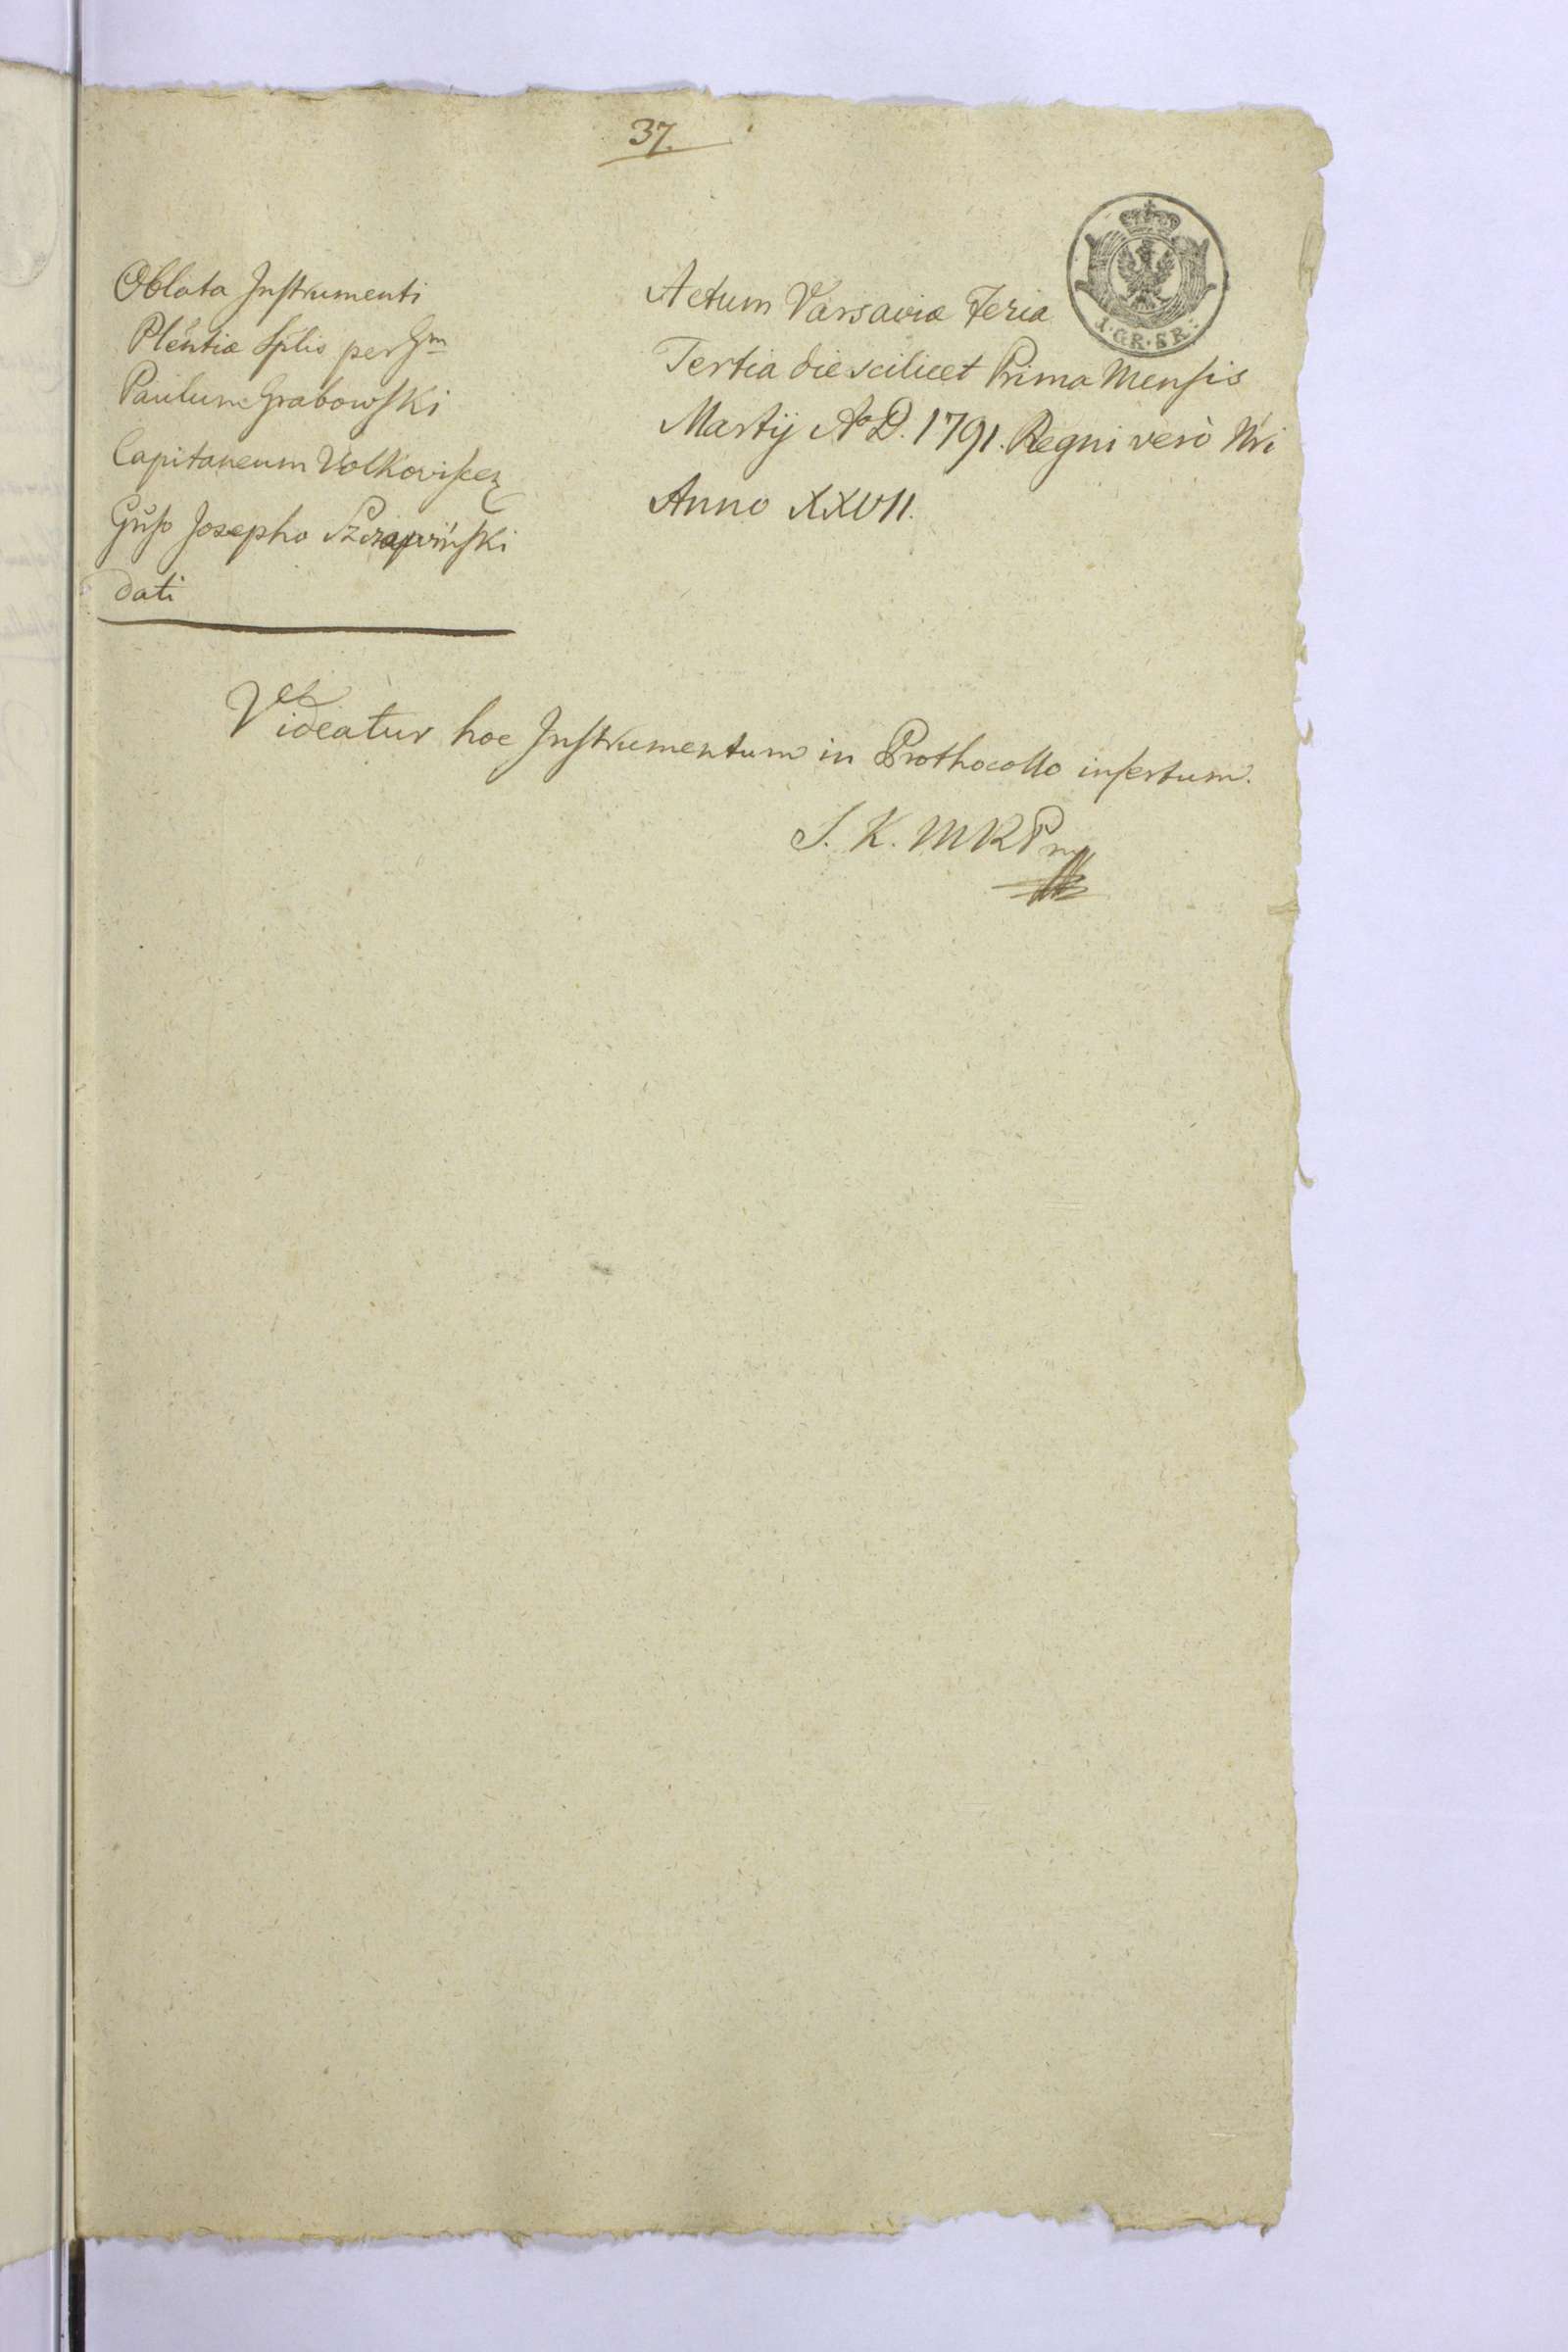 37.
Oblata Instrumenti
Pleñtiæ Splis per Gm
Paulum Grabowski
Capitaneum Volkoviscen
Gñso Josepho
dati
Actum Varsaviæ Feria
Tertia die scilicet Prima Mensis
Martij Ao D. 1791. Regni verò Nri
Anno XXVII.
1·GR·SR:
Videatur hoc Instrumentum in Prothocollo insertum.
S. K. MKP